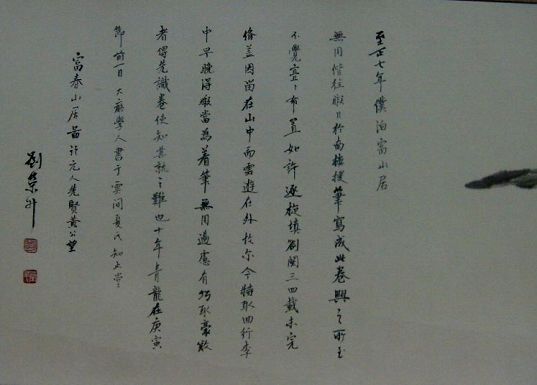 至正七年僕泊富山居
無用偕往暇日於南樓援筆寫成此卷興之所至
不覺亹々布置如許逐旋填劄閱三四載未完
偹盖因留在山中而雲遊在外故尔今特取回行李
中早晚得暇當為着筆無用過慮有巧取豪敚
者俾先識卷使知其就之難也十年青龍在庚寅
節前一日大癡學人書于雲間夏氏知止堂
富春山居啚 元人先賢黄公望
劉榮升